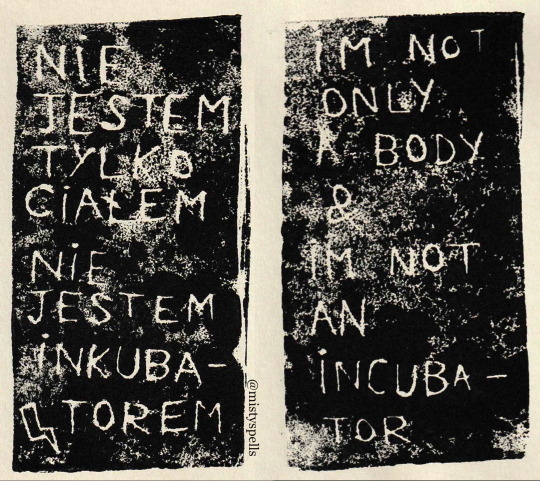 NIE
JESTEM
TYLKO
CIAŁEM
NiE
JESTEM
iNKUBA-
TOREM
@mistyspells
iM NOT
ONLY
A BODY
&
IM NOT
AN
iNCUBA-
TOR